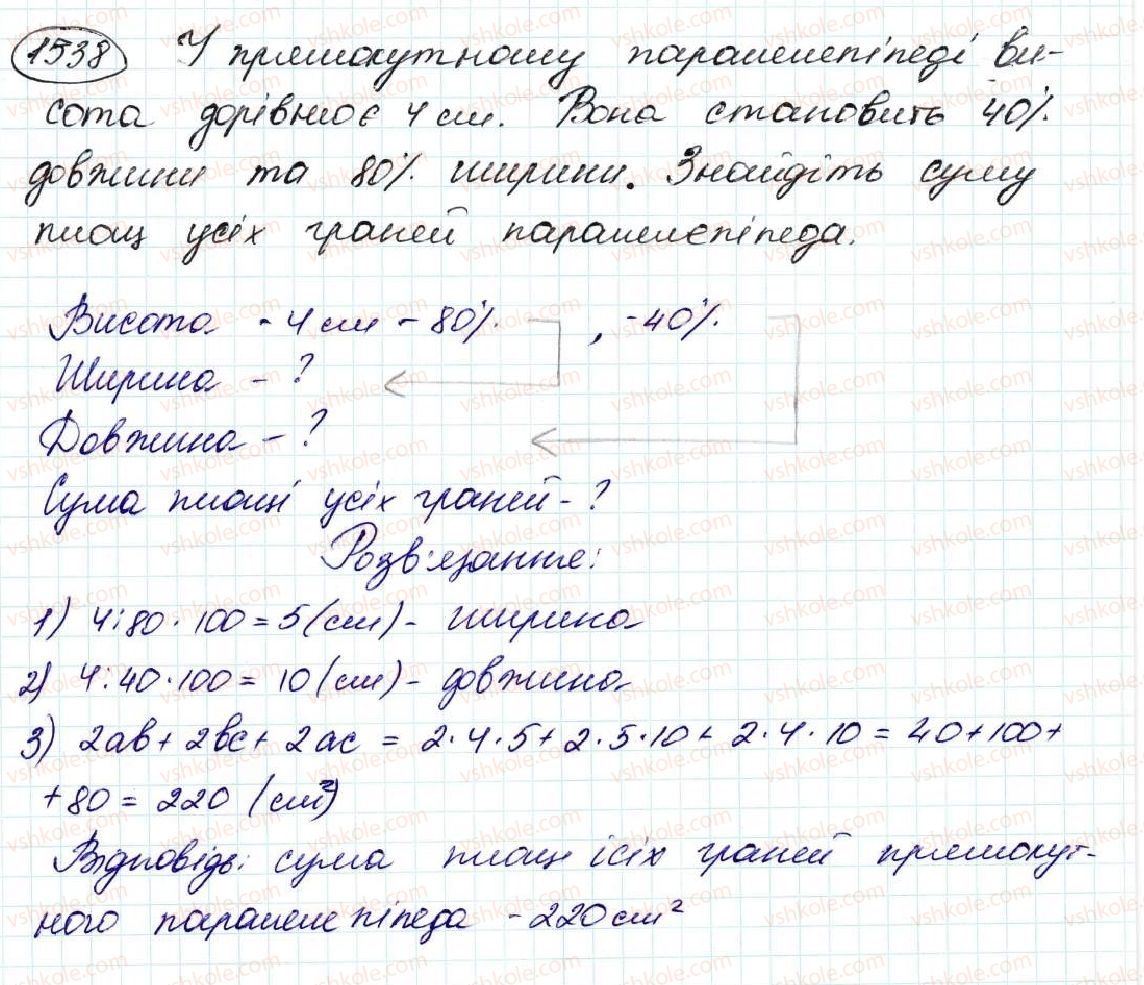 1538 У прямокутному паралелепіпеді ви-
сота дорівнює 4 см. Вона становить 40%
довжини та 80% ширини. Знайдіть суму
площ усіх граней паралелєпіпеда.
Висота - 4 см - 80% , - 40%
Ширина - ?
Довжина - ?
Сума площі усіх граней - ?
Розв'язання:
1) 4:80·100=5(см)- ширина
2) 4:40·100= 10(см)- довжина
3) 2ab+2bc+2ac = 2·4·5+2·5·10+2·4·10=40+100+
+80=220 (см²)
Відповідь: сума площ ісіх граней прямокут-
ного паралелепіпеда - 220 см²
vshkole.com